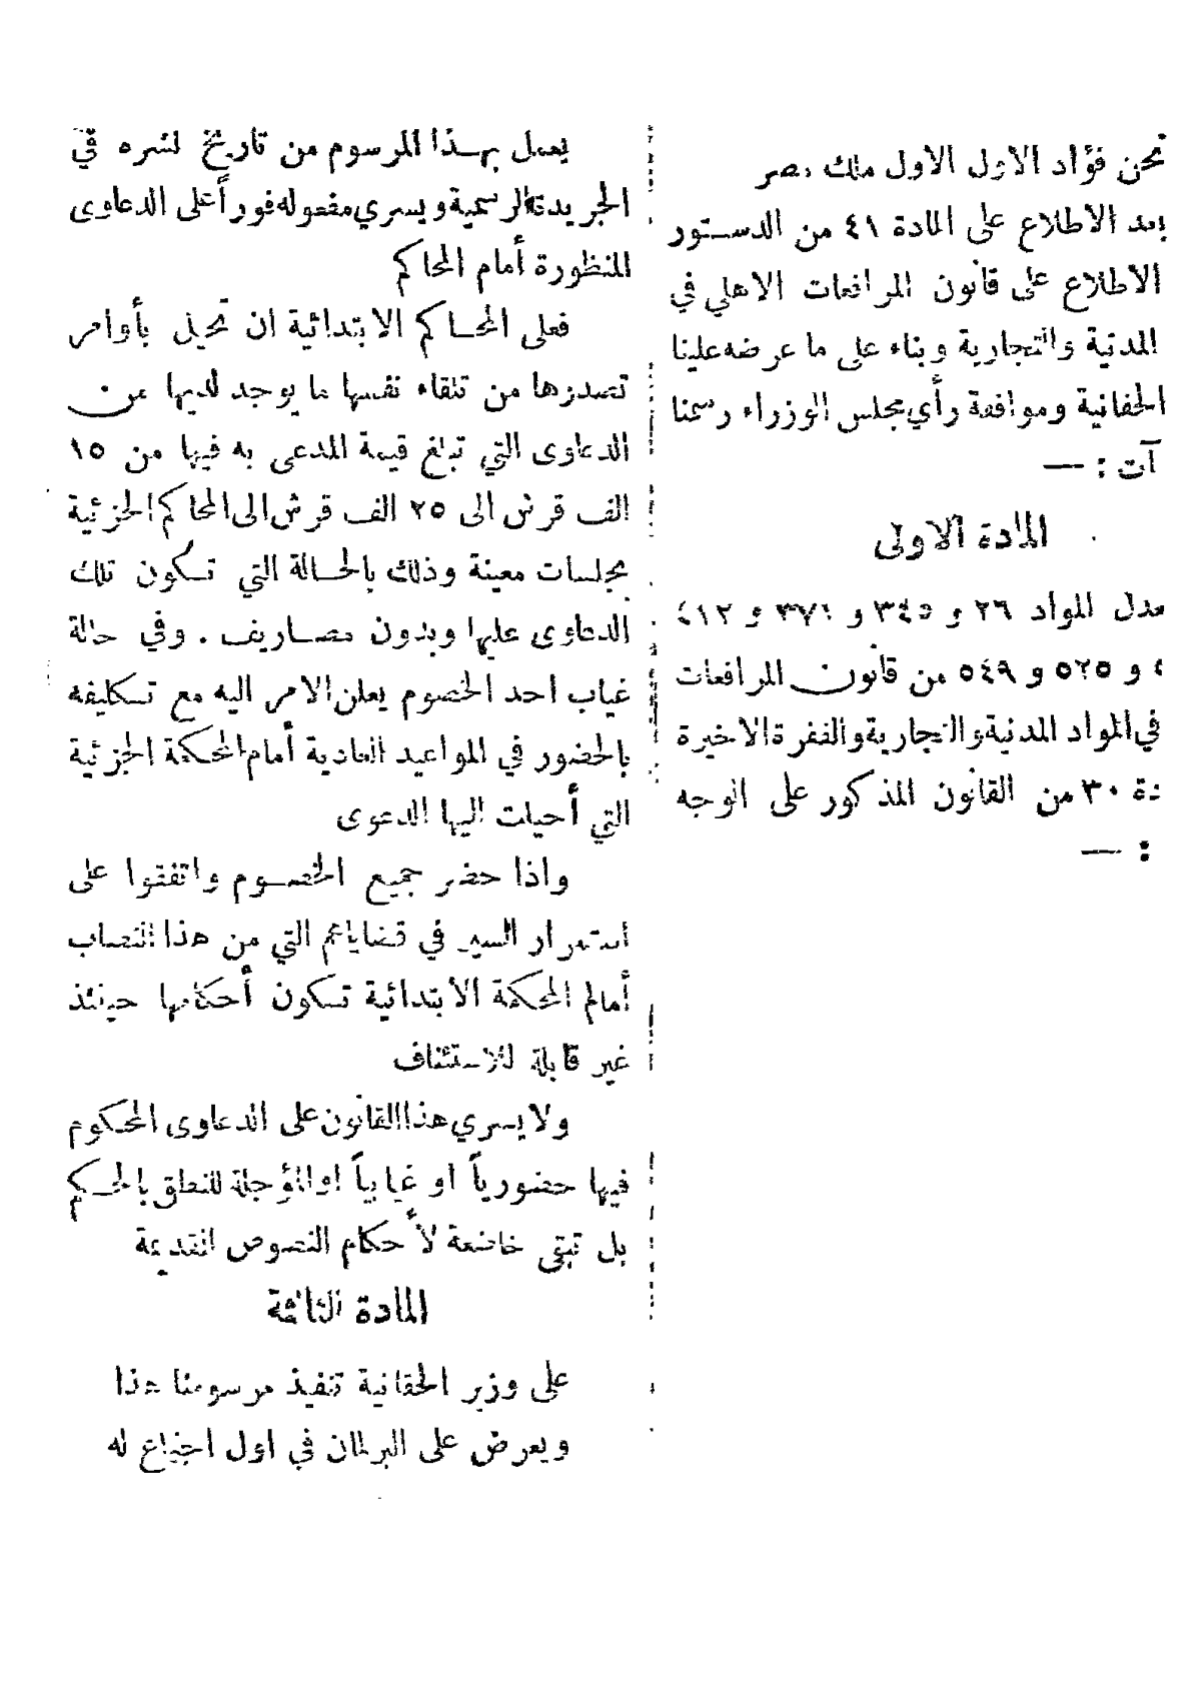 نحن فؤاد الاول الاول ملك مصر
بعد الاطلاع على المادة ٤١ من الدستور
الاطلاع على قانون المرافعات الاهلي في
المدنية والتجارية وبناء على ما عرضه علينا
الحقانية وموافقة رأي مجلس الوزراء رسمنا
آت : —
المادة الاولى
عدل المواد ٢٦ و ٣٤٥ و ٣٧١ و ٤١٢
و ٥٢٥ و ٥٤٩ من قانون المرافعات
في المواد المدنية والتجارية والفقرة الاخيرة
دة ٣٠ من القانون المذكور على الوجه
: —
يعمل بهذا المرسوم من تاريخ نشره في
الجريدة الرسمية ويسري مفعوله فوراً على الدعاوى
المنظورة أمام المحاكم
فعلى المحاكم الابتدائية ان تحيل بأوامر
تصدرها من تلقاء نفسها ما يوجد لديها من
الدعاوى التي تبلغ قيمة المدعى به فيها من ١٥
الف قرش الى ٢٥ الف قرش الى المحاكم الجزئية
بجلسات معينة وذلك بالحالة التي تكون تلك
الدعاوى عليها وبدون مصاريف . وفي حالة
غياب احد الخصوم يعلن الامر اليه مع تكليفه
بالحضور في المواعيد العادية أمام المحكمة الجزئية
التي أحيلت اليها الدعوى
واذا حضر جميع الخصوم واتفقوا على
استمرار السير في قضاياهم التي من هذا النصاب
أمام المحكمة الابتدائية تكون أحكامها حينئذ
غير قابلة للاستئناف
ولا يسري هذا القانون على الدعاوى المحكوم
فيها حضورياً او غيابياً او المؤجلة للنطق بالحكم
بل تبقى خاضعة لأحكام النصوص القديمة
المادة الثالثة
على وزير الحقانية تنفيذ مرسومنا هذا
ويعرض على البرلمان في اول اجتماع له